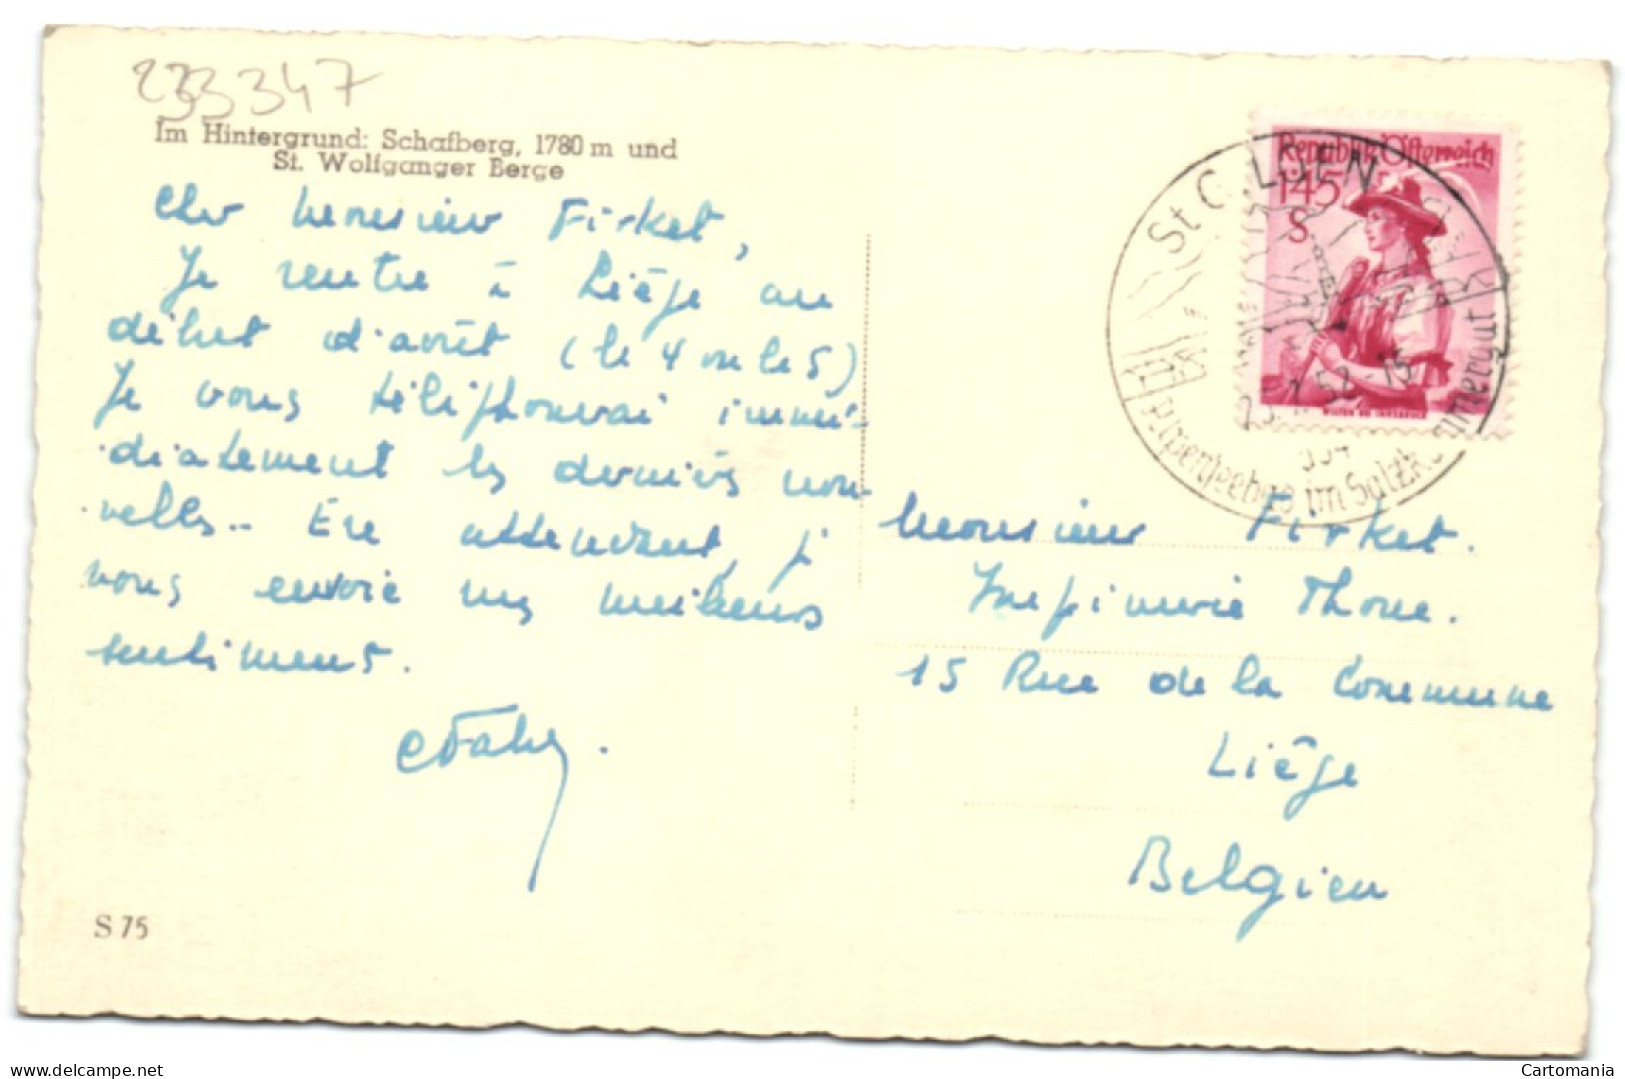 233347
Im Hintergrund: Schafberg, 1780 m und
St. Wolfganger Berge
Cher Monsieur Firket,
Je rentre à Liège au
début d'août (le 4 ou le 5)
Je vous téléphonerai immé-
diatement les dernières nou-
velles. En attendant, je
vous envoie mes meilleurs
sentiments.
S 75
Republik Österreich
1·45
S
WILTEN BEI INNSBRUCK
St. GILGEN
52-15
im Salzkammergut
Monsieur Firket.
Imprimerie Thone.
15 Rue de la Commune
Liège
Belgien
Cartomania